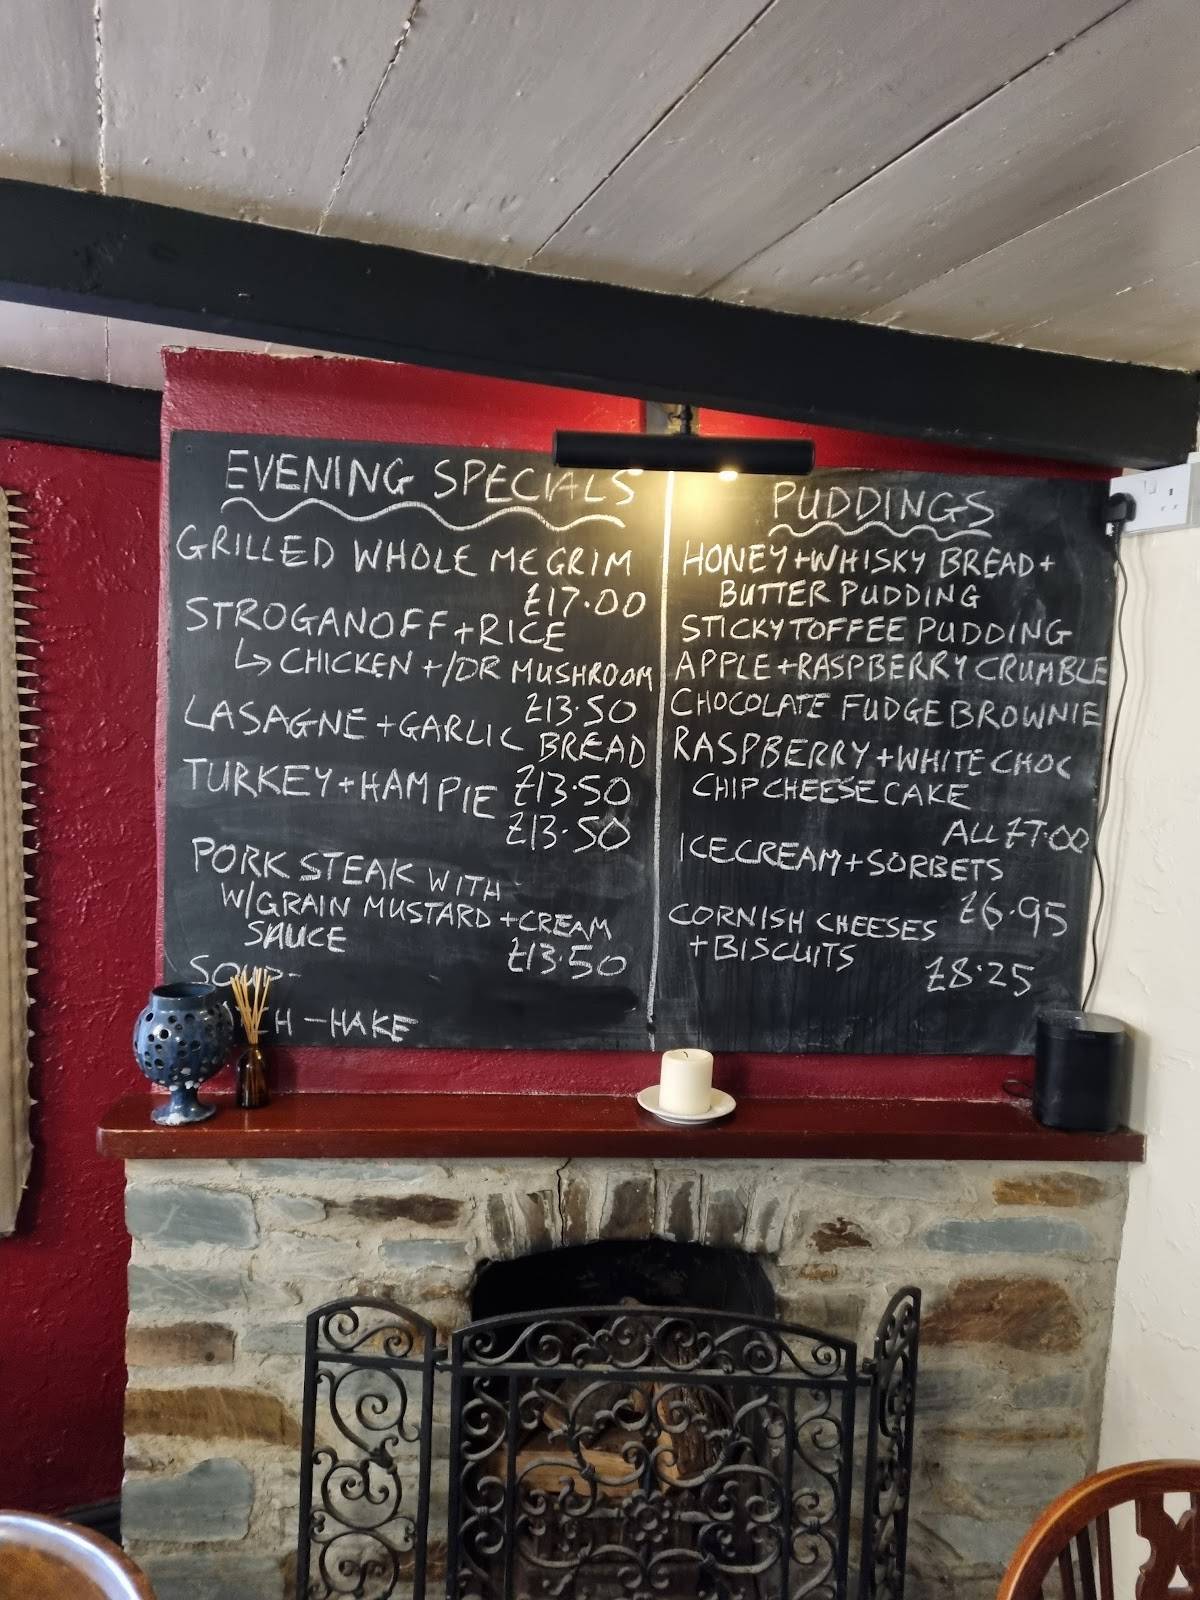 EVENING SPECIALS
GRILLED WHOLE MEGRIM
£17.00
STROGANOFF + RICE
↳ CHICKEN +/OR MUSHROOM
£13.50
LASAGNE + GARLIC BREAD
£13.50
TURKEY + HAM PIE
£13.50
PORK STEAK WITH
W/GRAIN MUSTARD + CREAM
SAUCE
£13.50
SOUP-
- HAKE
PUDDINGS
HONEY + WHISKY BREAD +
BUTTER PUDDING
STICKY TOFFEE PUDDING
APPLE + RASPBERRY CRUMBLE
CHOCOLATE FUDGE BROWNIE
RASPBERRY + WHITE CHOC
CHIP CHEESECAKE
ALL £7.00
ICECREAM + SORBETS
£6.95
CORNISH CHEESES
+ BISCUITS
£8.25